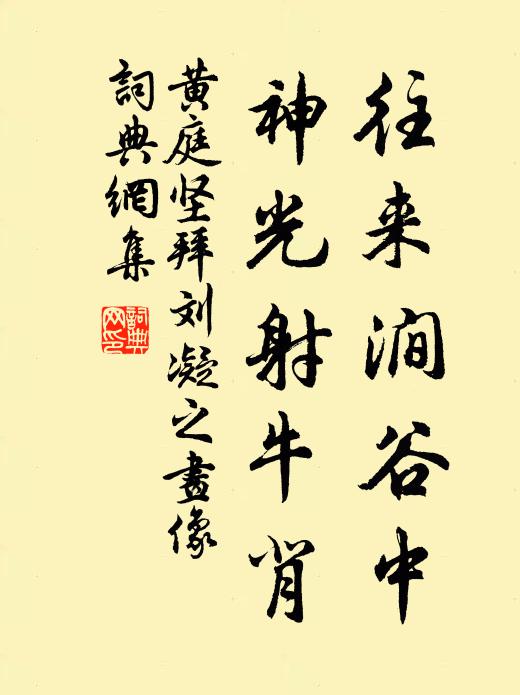 往来涧谷中
神光射牛背
黄庭坚拜刘凝之畫像
詞典網集
詞典
网印